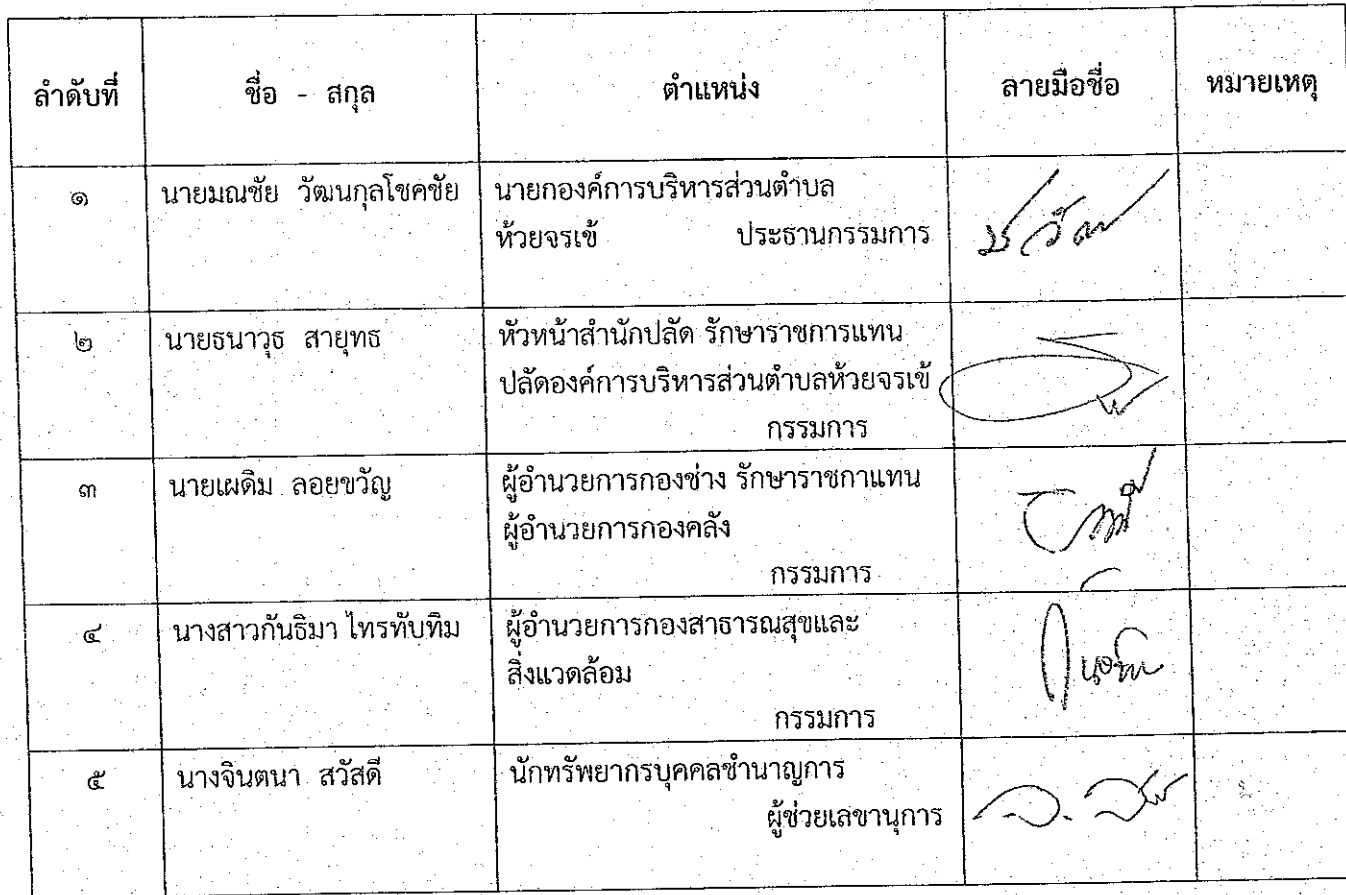 ลำดับที่ ชื่อ - สกุล ตำแหน่ง ลายมือชื่อ หมายเหตุ
๑ นายมณชัย วัฒนกุลโชคชัย นายกองค์การบริหารส่วนตำบล
ห้วยจรเข้ ประธานกรรมการ
๒ นายธนาวุธ สายุทธ หัวหน้าสำนักปลัด รักษาราชการแทน
ปลัดองค์การบริหารส่วนตำบลห้วยจรเข้
กรรมการ
๓ นายเผดิม ลอยขวัญ ผู้อำนวยการกองช่าง รักษาราชกาแทน
ผู้อำนวยการกองคลัง
กรรมการ
๔ นางสาวกันธิมา ไทรทับทิม ผู้อำนวยการกองสาธารณสุขและ
สิ่งแวดล้อม
กรรมการ
๕ นางจินตนา สวัสดี นักทรัพยากรบุคคลชำนาญการ
ผู้ช่วยเลขานุการ